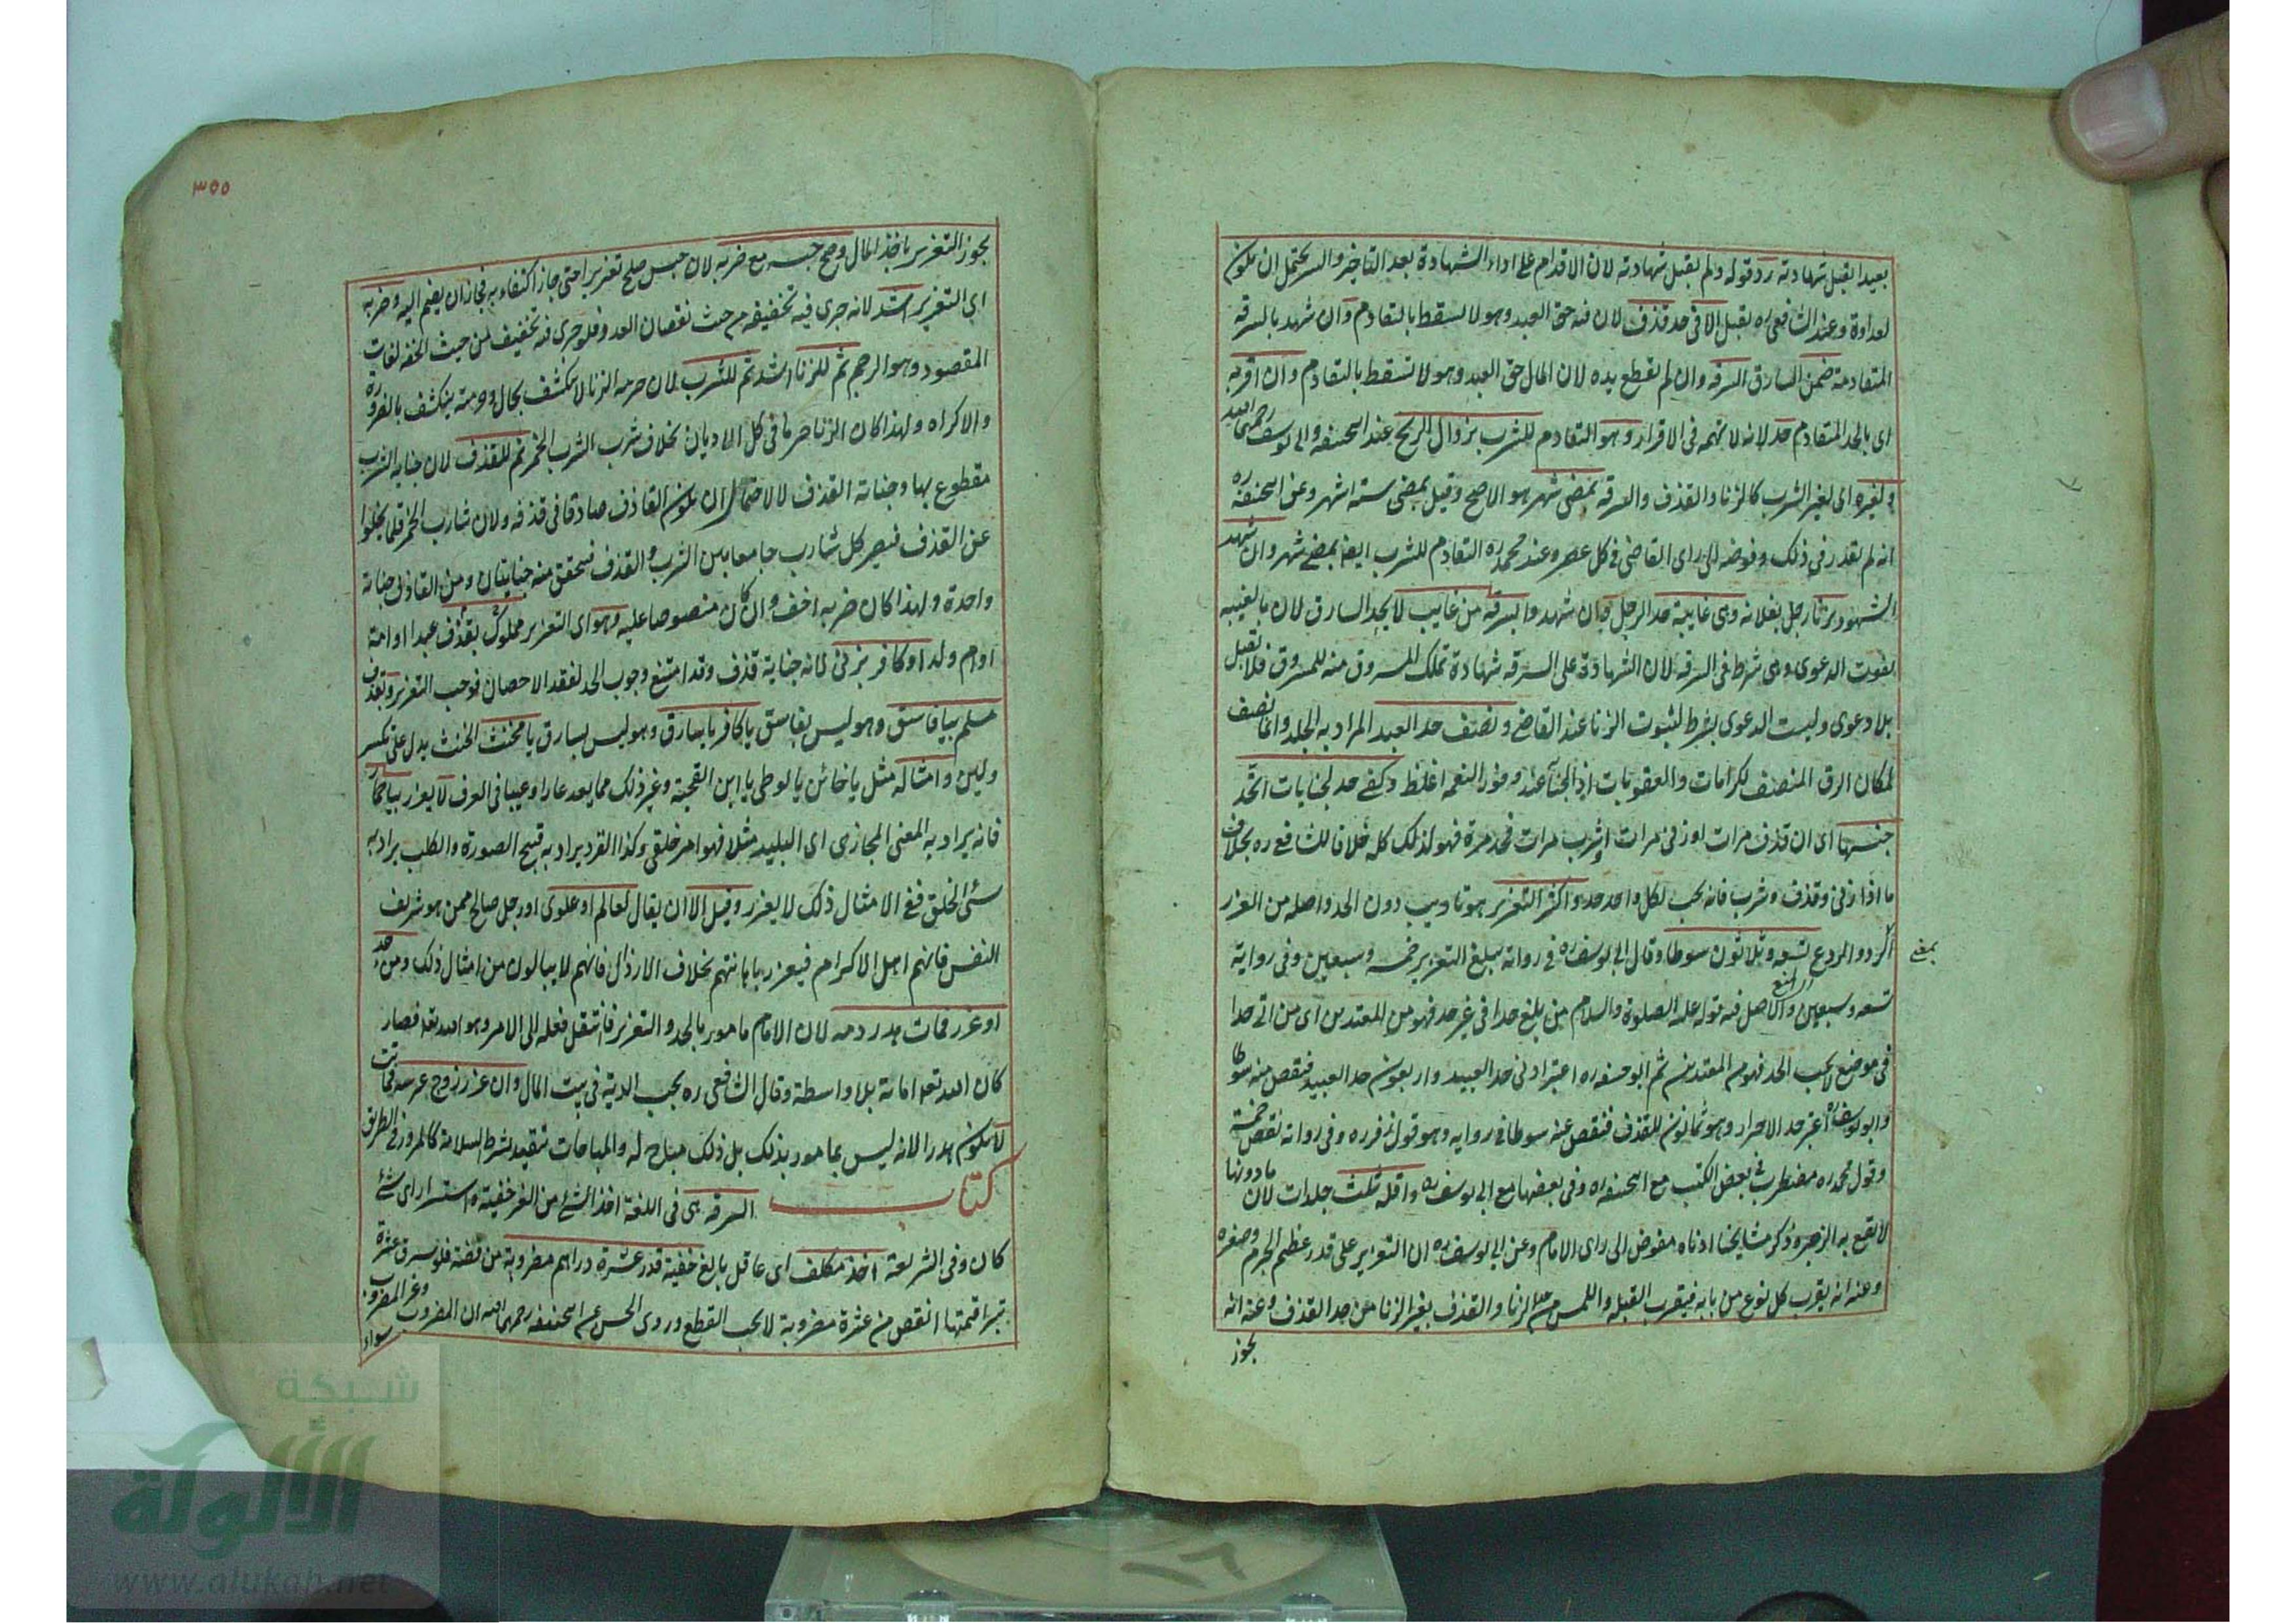 بعيد القبل شهادته رد قوله ولم يقبل شهادته لان الاقدام على اداء الشهادة بعد التاخير والستر يحتمل ان يكون
لعداوة وعند الشافعي ره يقبل الا في حد قذف لان فيه حق العبد وهو لا يسقط بالتقادم وان شهد بالسرقة
المتقادمة ضمن السارق السرقة وان لم تقطع يده لان المال حق العبد وهو لا تسقط بالتقادم وان اقر به
اى بالحد المتقادم حد لانه لا تهمة فى الاقرار وهو التقادم للشرب بزوال الريح عند ابيحنيفه وابى يوسف رحمهما الله
ولغيره اى لغير الشرب كالزنا والقذف والسرقة بمضى شهر هو الاصح وقيل بمضى ستة اشهر وعن ابيحنيفه ره
انه لم يقدر فى ذلك وفوضه الى راى القاضى فى كل عصر وعند محمد ره التقادم للشرب ايضا بمضى شهر وان شهد
الشهود بزنا رجل بفلانة وهى غايبة حد الرجل وان شهدوا بسرقة من غايب لا يحد السارق لان بالغيبة
يفوت الدعوى وهى شرط فى السرقة لان الشهادة على السرقة شهادة تملك المسروق منه للمسروق فلا تقبل
بلا دعوى وليست الدعوى بشرط لثبوت الزنا عند القاضى ونصف حد العبد المراد به الجلد وانما نصف
لمكان الرق المنصف لكرامات والعقوبات اذ الجناية عند وفور النعمه اغلظ وكفى حد لجنايات اتحد
جنسها اى ان قذف مرات او زنى مرات او شرب مرات فحد مرة فهو لذلك كله خلافا للشافعى ره بخلاف
ما اذا زنى وقذف وشرب فانه يجب لكل واحد حد واكثر التعزير هو تاديب دون الحد واصله من العزر
الرد والردع تسعه وثلاثون سوطا وقال ابى يوسف ره فى رواية يبلغ التعزير خمسه وسبعين وفى رواية
بمعنى
المنع
تسعه وسبعين والاصل فيه قوله عليه الصلوة والسلام من بلغ حدا فى غير حد فهو من المعتدين اى من اتى حدا
فى موضع لا يجب الحد فهو من المعتدين ثم ابو حنيفه ره اعتبر ادنى حد العبيد واربعون حد العبيد فنقص منه سوطا
وابو يوسف ره اعتبر حد الاحرار وهو ثمانون للقذف فنقص عنه سوطا فى رواية وهو قول زفر ره وفى رواية نقص خمسة
وقول محمد ره مضطرب فى بعض الكتب مع ابيحنيفه ره وفى بعضها مع ابى يوسف ره واقله ثلث جلدات لان ما دونها
لا يقع به الزجر وذكر مشايخنا ادناه مفوض الى راى الامام وعن ابى يوسف ره ان التعزير على قدر عظم الجرم وصغره
وعنه انه يقرب كل نوع من بابه فيقرب القبلة واللمس من حد الزنا والقذف بغير الزنا من حد القذف وعنه انه
يجوز
٣٥٥
يجوز التعزير باخذ المال وصح حبسه مع ضربه لان حبس صلح تعزيرا حتى جاز اكتفاء به فجاز ان يضم اليه وضربه
اى التعزير اشد لانه جرى فيه تخفيفه من حيث نقصان العدد فلو جرى فيه تخفيف من حيث الخفة لفات
المقصود وهو الرجم ثم للزنا اشد ثم للشرب لان حرمة الزنا لا ينكشف بحال وحرمته ينكشف بالضرورة
والاكراه ولهذا كان الزنا حراما فى كل الاديان بخلاف شرب الشرب الخمر ثم للقذف لان جناية الشرب
مقطوع بها وجناية القذف لا لاحتمال ان يكون القاذف صادقا فى قذفه ولان شارب الخمر قلما يخلوا
عن القذف فيصير كل شارب جامعا بين الشرب والقذف فيتحقق منه جنايتان ومن القاذف جناية
واحدة ولهذا كان ضربه اخف وان كان منصوصا عليه وهو اى التعزير مملوك بقذف عبد او امة
او ام ولد او كافر بزنى لانه جناية قذف وقد امتنع وجوب الحد لفقد الاحصان فوجب التعزير وبقذف
مسلم بيا فاسق وهو ليس بفاسق يا كافر يا سارق وهو ليس بسارق يا مخنث الخنث يدل على تكسر
ولين وامثاله مثل يا خائن يا لوطى يا ابن القحبة وغير ذلك مما يعد عارا وعيبا فى العرف لا يعزر بيا حمار
فانه يراد به المعنى المجازى اى البليد مثلا فهو امر خلقى وكذا القرد يراد به قبيح الصورة والكلب يراد به
سئ الخلق ففى الامثال ذلك لا يعزر وقيل الا ان يقال لعالم او علوى او رجل صالح ممن هو شريف
النفس فانهم اهل الاكرام فيعزر باهانتهم بخلاف الارذال فانهم لا يبالون من امثال ذلك ومن حد
او عزر فمات هدر دمه لان الامام مامور بالحد والتعزير فانتقل فعله الى الامر وهو الله تعالى فصار
كان الله تعالى اماته بلا واسطة وقال الشافعى ره يجب الدية فى بيت المال وان عزر زوج عرسه فماتت
لا يكون هدرا لانه ليس بمامور بذلك بل ذلك مباح له والمباحات تتقيد بشرط السلامة كالمرور فى الطريق
كتاب السرقه هى فى اللغة اخذ الشئ من الغير خفية واستسرارا اى شئ
كان وفى الشريعة اخذ مكلف اى عاقل بالغ خفية قدر عشرة دراهم مضروبة من فضة فلو سرق عشرة
تبرا قيمتها انقص من عشرة مضروبة لا يجب القطع وروى الحسن عن ابيحنيفه رحمهما الله ان المضروب وغير المضروب
سواء
شبكة
الألوكة
www.alukah.net